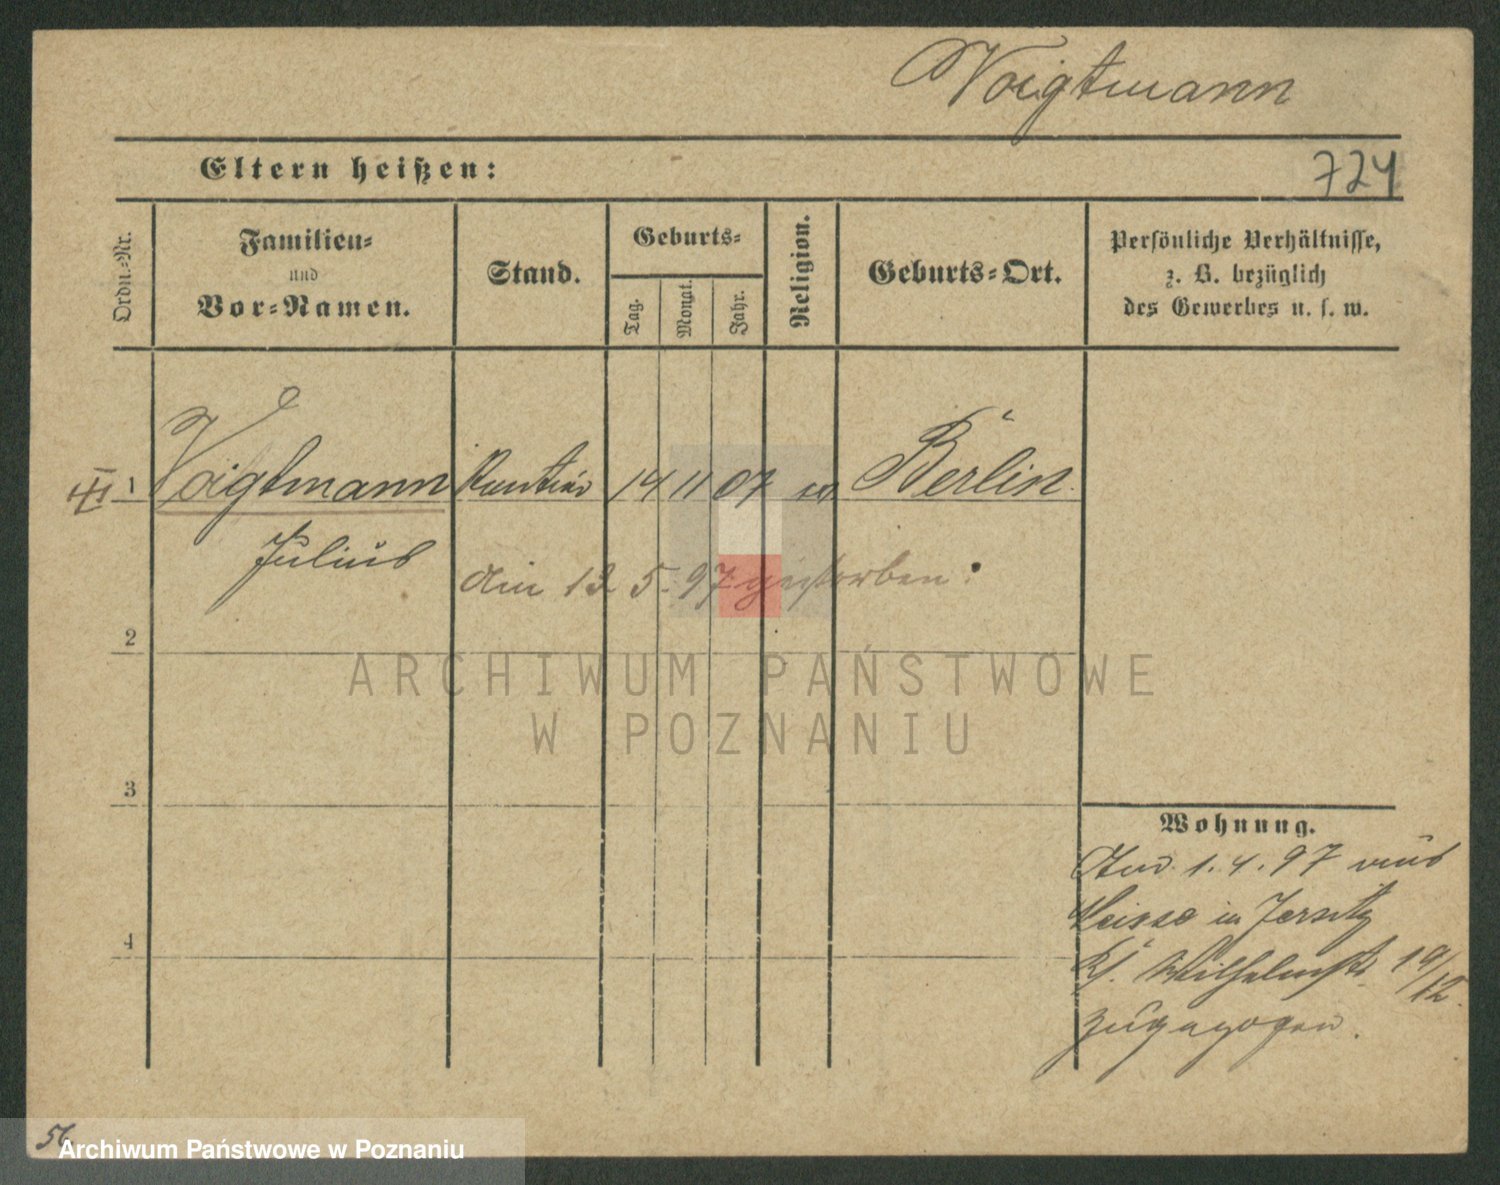 Voigtmann
Eltern heißen:
724
Ordn.-Nr.
Familien-
und
Vor-Namen.
Stand.
Geburts-
Tag.
Monat.
Jahr.
Religion.
Geburts-Ort.
Persönliche Verhältnisse,
z. B. bezüglich
des Gewerbes u. s. w.
1 Voigtmann Rentier 14 11 07 ev Berlin
Julius
am 13. 5. 97 gestorben.
2
3
4
Wohnung.
Am 1. 4. 97 aus
Neisse in Jersitz
Ks. Wilhelmstr. 19/12.
zugezogen.
56
ARCHIWUM PAŃSTWOWE
W POZNANIU
Archiwum Państwowe w Poznaniu